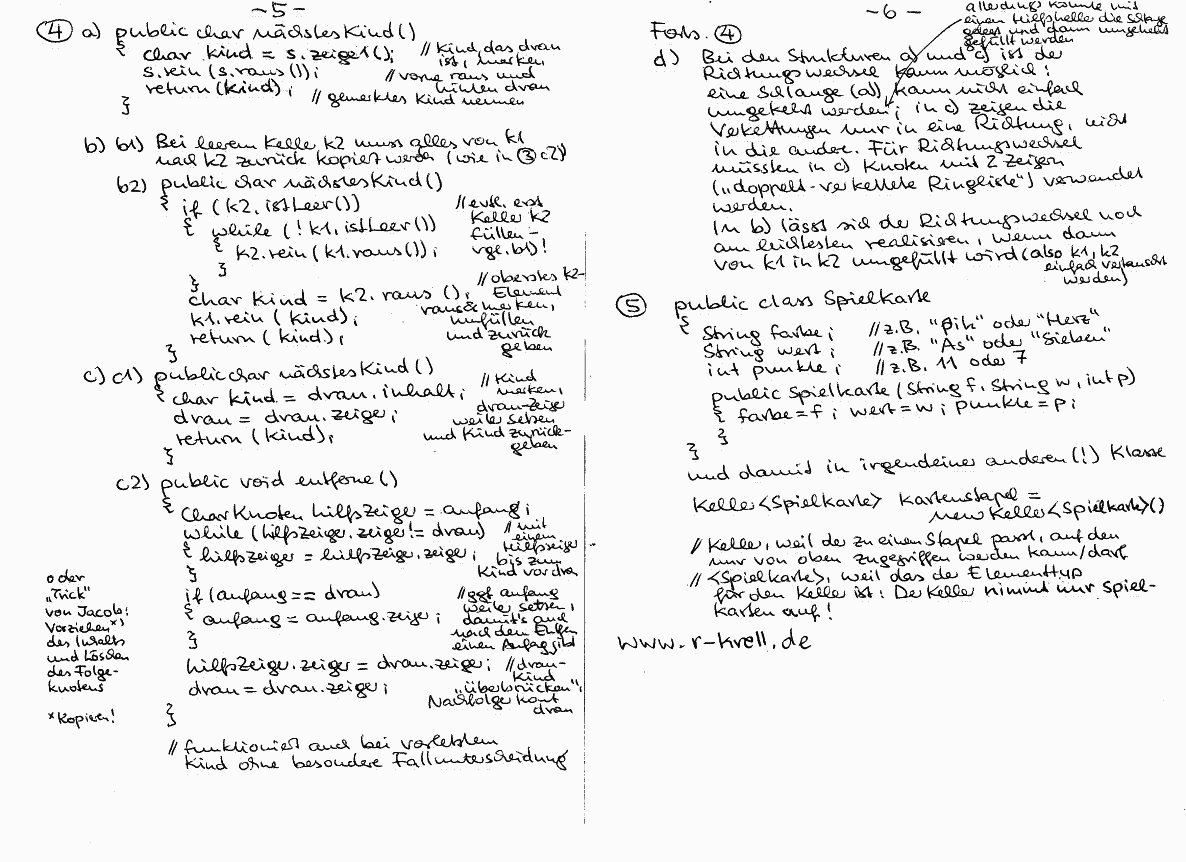 -5-
④ a) public char nächstesKind()
{ char kind = s.zeige1(); // Kind, das dran ist, merken
s.rein(s.raus()); // vorne raus und hinten dran
return(kind); // gemerktes Kind nennen
}
b) b1) Bei leerem Keller k2 muss alles von k1
nach k2 zurück kopiert werden (wie in ③ c2)
b2) public char nächstesKind()
{ if (k2.istLeer()) // evtl. erst
{ while (!k1.istLeer()) Keller k2
{ k2.rein(k1.raus()); füllen -
} vgl. b1)!
}
char kind = k2.raus(); // oberstes k2-Element
k1.rein(kind); raus & merken,
return(kind); umfüllen
} und zurück
geben
c) c1) public char nächstesKind()
{ char kind = dran.inhalt; // Kind merken,
dran = dran.zeiger; dran-Zeiger weiter setzen
return(kind); und Kind zurück-
} geben
c2) public void entferne()
{ CharKnoten hilfsZeiger = anfang;
while (hilfsZeiger.zeiger != dran) // mit einem
{ hilfsZeiger = hilfsZeiger.zeiger; Hilfszeiger bis zum
} Kind vor dran
if (anfang == dran) // ggf. anfang
{ anfang = anfang.zeiger; weiter setzen, damit's auch
} nach dem Entfer. einen Anfang gibt
hilfsZeiger.zeiger = dran.zeiger; // dran-Kind
dran = dran.zeiger; "überbrücken",
} Nachfolger kommt dran
// funktioniert auch bei vorletztem
Kind ohne besondere Fallunterscheidung
oder
"Trick"
von Jacob:
Vorziehen*)
des Inhalts
und Löschen
des Folge-
knotens
*Kopieren!
-6-
allerdings könnte mit
einem Hilfskeller die Schlange
geleert und dann umgekehrt
gefüllt werden
Forts. ④
d) Bei den Strukturen a) und c) ist der
Richtungswechsel kaum möglich:
eine Schlange (a)) kann nicht einfach
umgekehrt werden; in c) zeigen die
Verkettungen nur in eine Richtung, nicht
in die andere. Für Richtungswechsel
müssten in c) Knoten mit 2 Zeigern
("doppelt-verkettete Ringliste") verwendet
werden.
In b) lässt sich der Richtungswechsel noch
am leichtesten realisieren, wenn dann
von k1 in k2 umgefüllt wird (also k1, k2
einfach vertauscht
werden)
⑤ public class Spielkarte
{ String farbe; // z.B. "Pik" oder "Herz"
String wert; // z.B. "As" oder "Sieben"
int punkte; // z.B. 11 oder 7
public Spielkarte (String f, String w, int p)
{ farbe = f; wert = w; punkte = p;
}
}
und damit in irgendeiner anderen (!) Klasse
Keller<Spielkarte> kartenstapel =
new Keller<Spielkarte>()
// Keller, weil der zu einem Stapel passt, auf den
nur von oben zugegriffen werden kann/darf
// <Spielkarte>, weil das der Elementtyp
für den Keller ist: Der Keller nimmt nur Spiel-
karten auf!
www.r-krell.de